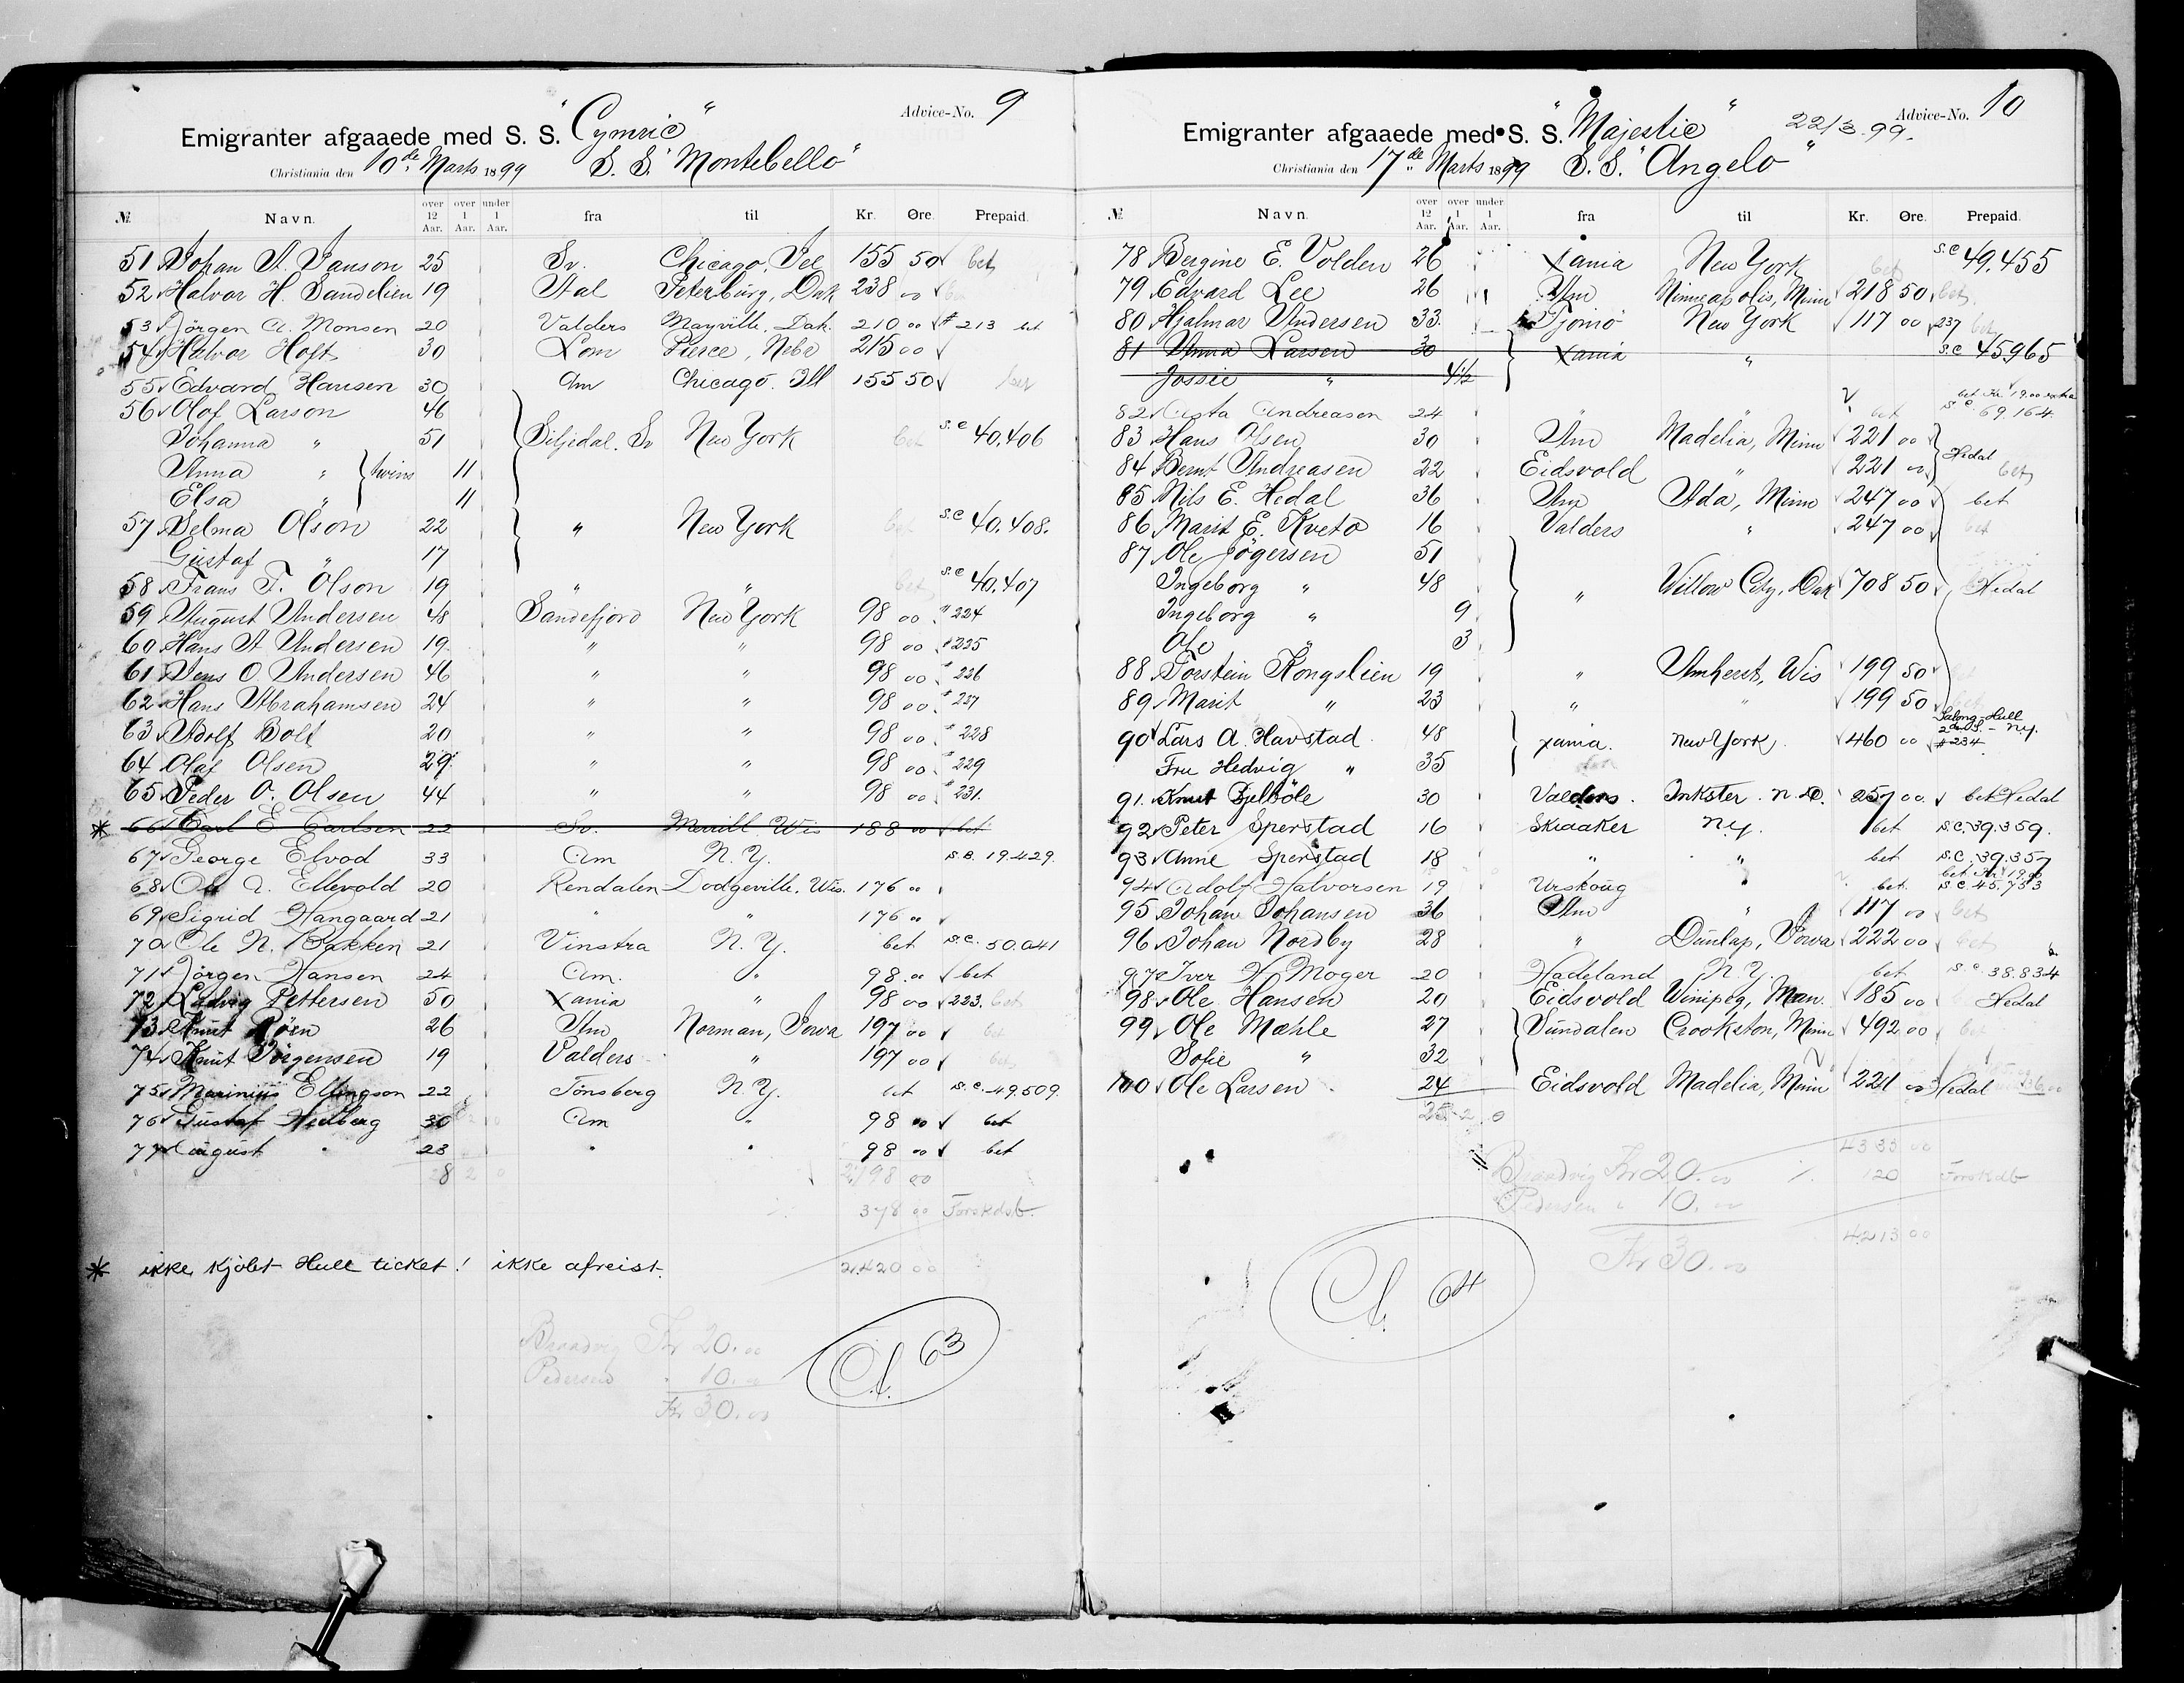 Emigranter afgaaede med S. S. "Cymric" Advice-No. 9
Christiania den 10de Marts 1899 S. S. "Montebello"
№ Navn. over 12 Aar. over 1 Aar. under 1 Aar. fra til Kr. Øre. Prepaid.
51 Johan A. Janson 25 Sv. Chicago, Ill 155 50 bet
52 Halvor H. Sandelien 19 Aal Peterburg, Dak 238 00
53 Jörgen A. Monsen 20 Valders Mayville, Dak. 210 00 # 213 bet
54 Halvor Hoft 30 Lom Pierce, Nebr 215 00
55 Edvard Hansen 30 Am Chicago. Ill 155 50
56 Olof Larson 46
Johanna " 51 Siljedal. Sv New York bet S.C 40.406
Anna " twins 11
Elsa " 11
57 Selma Olson 22 " New York bet S.C 40.408.
Gustaf " 17
58 Frans F. Olson 19 " " bet S.C 40.407
59 August Andersen 48 Sandefjord New York 98 00 # 224
60 Hans A Andersen 19 " " 98 00 # 225
61 Jens O. Andersen 46 " " 98 00 # 226
62 Hans Abrahamsen 24 " " 98 00 # 227
63 Adolf Bolt 20 " " 98 00 # 228
64 Olaf Olsen 29 " " 98 00 # 229
65 Peder O. Olsen 44 " " 98 00 # 231.
* 66 Carl E Carlsen 22 Sv. Merrill Wis 188 00 bet
67 George Elvod 33 Am N.Y. S.C. 19.429.
68 Ole A. Ellevold 20 Rendalen Dodgeville, Wis. 176 00
69 Sigrid Hangaard 21 " " 176 00
70 Ole N. Bakken 21 Vinstra N.Y. bet S.C. 50.041
71 Jörgen Hansen 24 Am. " 98 00 bet
72 Ludvig Pettersen 50 Xania " 98 00 223. bet
73 Knut Röen 26 Am Norman, Iowa 197 00 bet
74 Knut Jörgensen 19 Valders " 197 00 bet
75 Marinius Ellingson 22 Tönsberg N.Y. bet S.C. 49.509
76 Gustaf Hedberg 30 Am " 98 00 bet
77 August " 23 " " 98 00 bet
28 2 0 2798 00
378 00 Forskdsb.
* ikke kjöbt Hull ticket! ikke afreist. 2420 00
Braadvig Kr 20.00
Pedersen " 10.00
Kr 30.00
63
Emigranter afgaaede med S. S. "Majestic" 22/3.99. Advice-No. 10
Christiania den 17de Marts 1899 S. S. "Angelo"
№ Navn. over 12 Aar. over 1 Aar. under 1 Aar. fra til Kr. Øre. Prepaid.
78 Bergine E. Volden 26 Xania New York bet S.C 49.455
79 Edvard Lee 26 Am Minneapolis, Minn 218 50 bet
80 Hjalmar Andersen 33 Tjömö New York 117 00 237 bet
81 Anna Larsen 30 Xania " S.C 45965
Jossie " 4½
bet Kr 19.00 extra
82 Asta Andreasen 24 " " bet S.C. 69.164
83 Hans Olsen 30 Am Madelia, Minn 221 00
84 Bernt Andreasen 22 Eidsvold " 221 00 Hedal bet
85 Nils E. Hedal 36 Am Ada, Minn 247 00 bet
86 Marit E. Kveto 16 Valders " 247 00 bet
87 Ole Jögersen 51
Ingeborg " 48 " Willow City, Dak 708 50 Hedal
Ingeborg " 9
Ole " 3
88 Torstein Kongslien 19 " Amherst, Wis 199 50
89 Marit " 23 " " 199 50 bet
90 Lars A. Havstad 48 Xania. New York. 460 00 Salong-Hull 2den S. - N.Y. # 234
Fru Hedvig " 35
91. Knut Fjelböle 30 Valders. Inkster. N.D. 257 00 bet Hedal
92 Peter Sperstad 16 Skiaaker N.Y. bet S.C. 39.359.
93 Anne Sperstad 18 " " bet S.C. 39.357
bet Kr 19.00
94 Adolf Halvorsen 19 Urskoug " bet. S.C. 45.733
95 Johan Johansen 36 Am " 117 00 bet
96 Johan Nordby 28 " Dunlap, Iowa 222 00 bet
97 Iver H. Moger 20 Hadeland N.Y. bet S.C. 38.834
98 Ole Hansen 20 Eidsvold Winipeg, Man. 185 00 Hedal
99 Ole Mæhle 27 Sundalen Crookston, Minn 492 00 bet
Sofie " 32
100 Ole Larsen 24 Eidsvold Madelia, Minn 221 00 Hedal
25 2 0
4333 00
Braadvig Kr 20.00 120 Forskdb
Pedersen " 10.00
4213 00
Kr 30.00
64